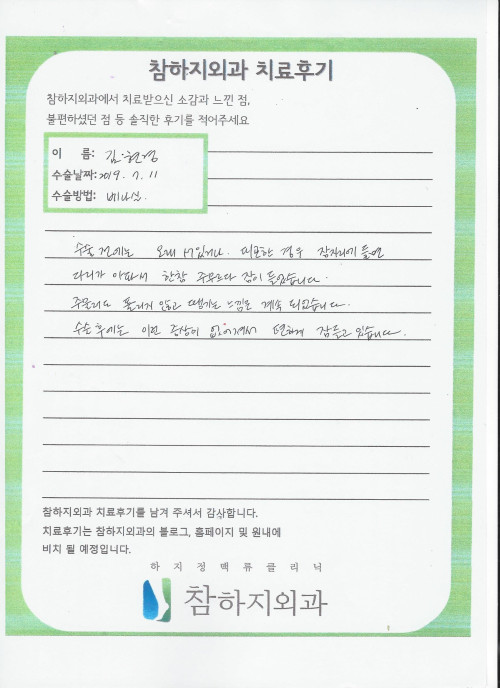 참하지외과 치료후기
참하지외과에서 치료받으신 소감과 느낀 점,
불편하셨던 점 등 솔직한 후기를 적어주세요
이 름: 김현경
수술날짜: 2019. 7. 11
수술방법: 베나실.
수술 전에는 오래 서있거나 피곤한 경우 잠자리에 들면
다리가 아파서 한참 주무르다 잠이 들었습니다.
주물러도 풀리지 않고 땡기는 느낌은 계속 되었습니다.
수술 후에는 이런 증상이 없어져서 편하게 잠들고 있습니다.
참하지외과 치료후기를 남겨 주셔서 감사합니다.
치료후기는 참하지외과의 블로그, 홈페이지 및 원내에
비치 될 예정입니다.
하지정맥류클리닉
참하지외과